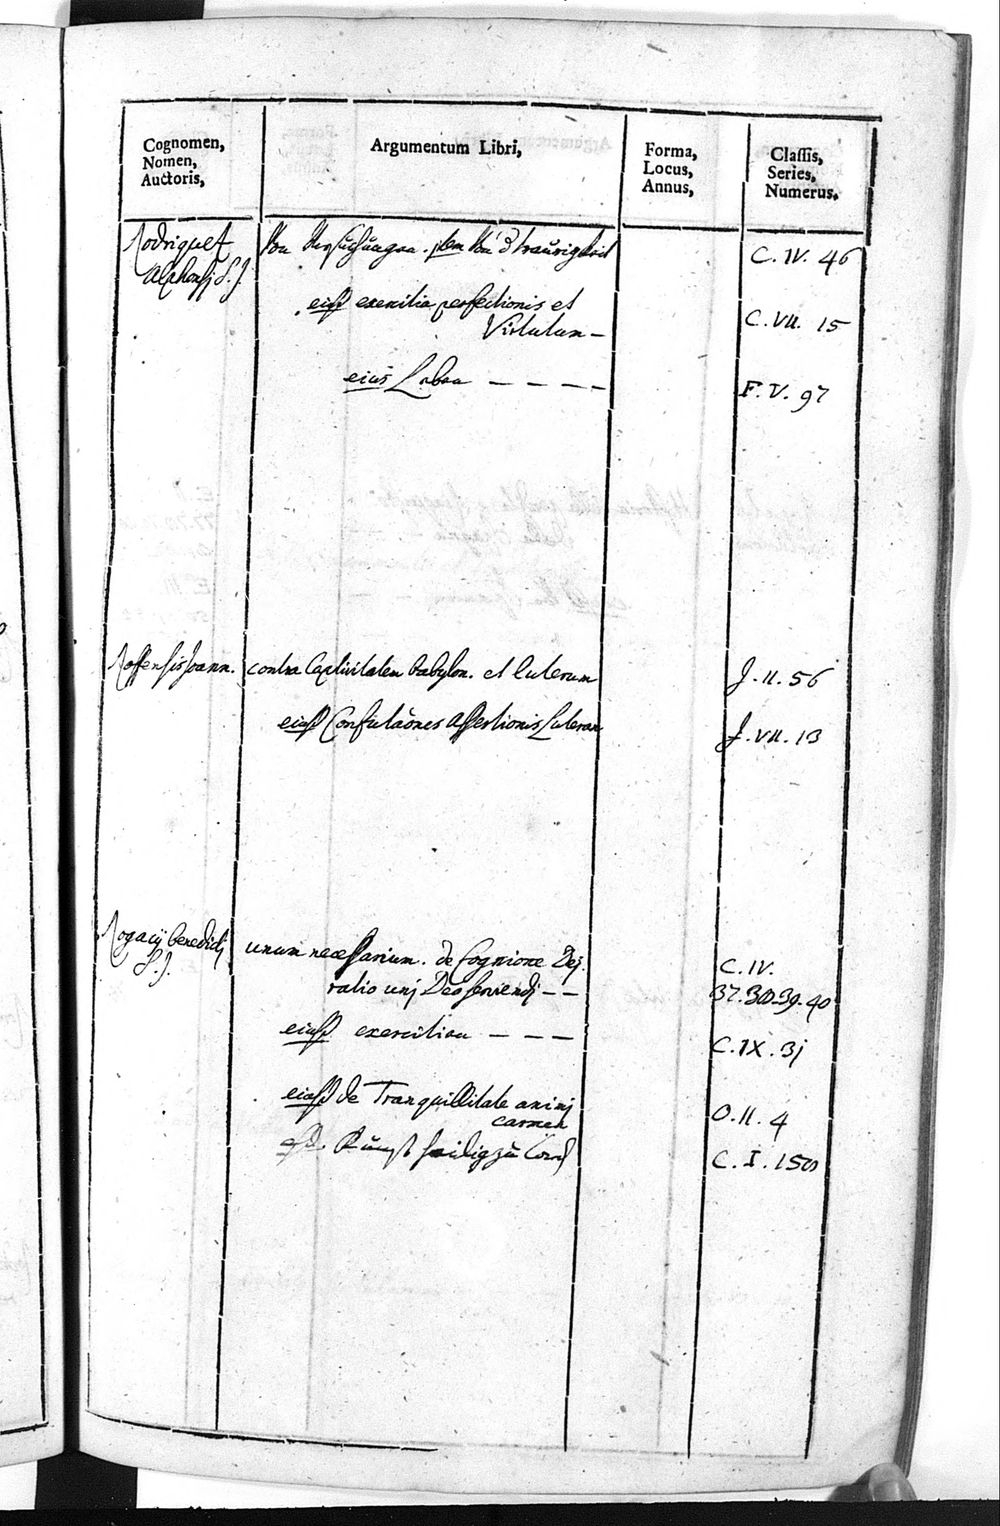 Cognomen,
Nomen,
Auctoris,
Argumentum Libri,
Forma,
Locus,
Annus,
Classis,
Series,
Numerus.
Rodriquez
Alphonsj S.J.
Von Versuchungen. item Von d traurigkeit
C. IV. 46
eiusd exercitia perfectionis et
Virtutum –
C. VII. 15
eius – – – –
F. V. 97
Roffensis Joann.
contra Captivitatem babylon. et luterum
J. II. 56
eiusd Confutaones assertionis Luteran
J. VII. 13
Rogacij Benedicti
S.J.
unum necessarium. de Cognitione Dej.
C. IV.
ratio unj Deo serviendj – –
37. 38. 39. 40
eiusd exercitia – – –
C. IX. 31
eiusd de Tranquillitate animj
carmen
O. II. 4
Kunst zu
C. I. 150